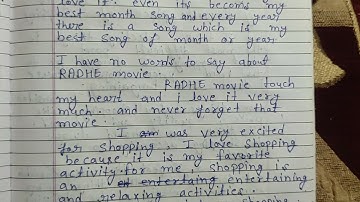 love it. even its becoms my
best month song and every year
there is a song which is my
best song of month or year
I have no words to say about
RADHE movie.
RADHE movie touch
my heart and i love it very
much. and never forget that
movie.
I am was very excited
for shopping. I love shopping
because it is my favorite
activity for me, shopping is
an entertaing entertaining
and relaxing activities.
shopping